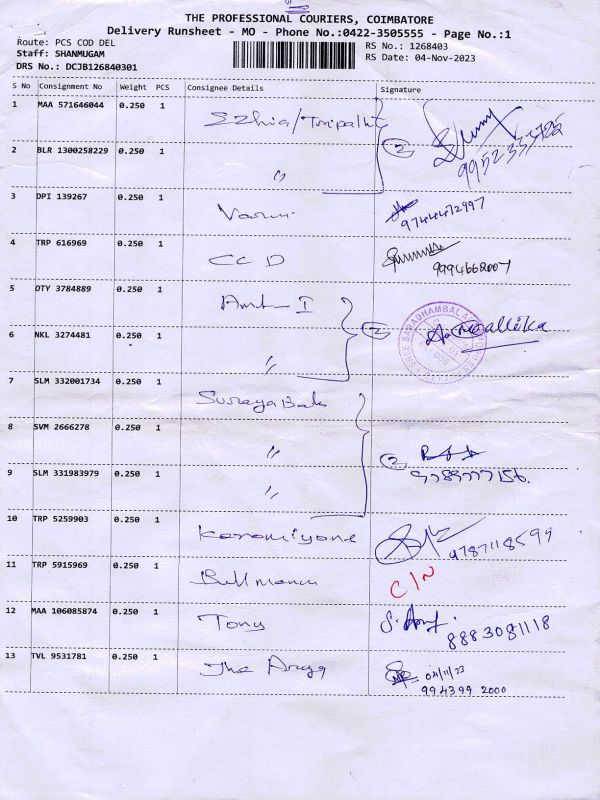 THE PROFESSIONAL COURIERS, COIMBATORE
Delivery Runsheet - MO - Phone No.:0422-3505555 - Page No.:1
Route: PCS COD DEL
RS No.: 1268403
Staff: SHANMUGAM
RS Date: 04-Nov-2023
DRS No.: DCJB126840301
S No Consignment No Weight PCS Consignee Details Signature
1 MAA 571646044 0.250 1
2 BLR 1300258229 0.250 1 〃 2
3 DPI 139267 0.250 1 9744472997
4 TRP 616969 0.250 1 CCD 9994662007
5 OTY 3784889 0.250 1
6 NKL 3274481 0.250 1 〃 2
7 SLM 332001734 0.250 1
8 SVM 2666278 0.250 1 〃 2
9 SLM 331983979 0.250 1 〃 9789777156.
10 TRP 5259903 0.250 1 9787118599
11 TRP 5915969 0.250 1 C/N
12 MAA 106085874 0.250 1 Tony 8883081118
13 TVL 9531781 0.250 1 04/11/23
994399 2000